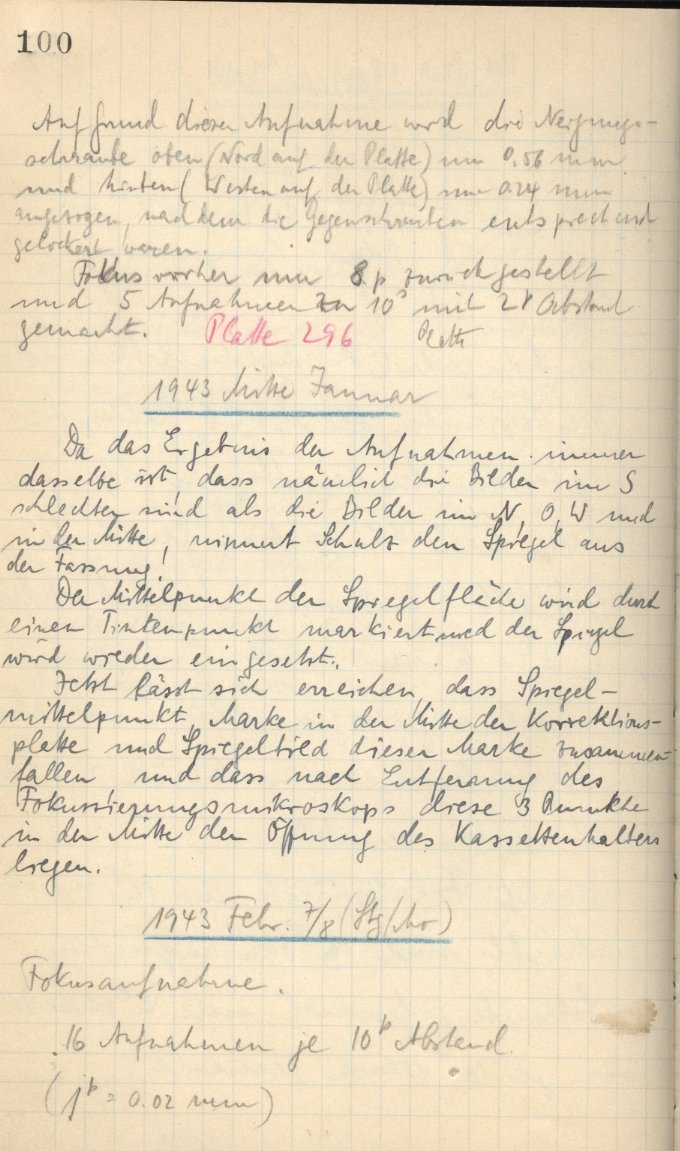 100
Auf Grund dieser Aufnahme wird die Neigungs-
schraube oben (Nord auf der Platte) um 0,56 mm
und hinten (Westen auf der Platte) um 0.24 mm
angezogen, nachdem die Gegenschrauben entsprechend
gelockert waren.
Fokus vorher um 8 p zurückgestellt
und 5 Aufnahmen zu 10s mit 2p Abstand
gemacht. Platte 296 Platte
1943 Mitte Januar
Da das Ergebnis der Aufnahmen immer
dasselbe ist, dass nämlich die Bilder im S
schlechter sind als die Bilder im N, O, W und
in der Mitte, nimmt Schulz den Spiegel aus
der Fassung!
Der Mittelpunkt der Spiegelfläche wird durch
einen Tintenpunkt markiert und der Spiegel
wird wieder eingesetzt.
Jetzt lässt sich erreichen, dass Spiegel-
mittelpunkt, Marke in der Mitte der Korrektions-
platte und Spiegelbild dieser Marke zusammen-
fallen und dass nach Entfernung des
Fokussierungsmikroskops diese 3 Punkte
in der Mitte der Öffnung des Kassettenhalters
liegen.
1943 Febr. 7/8 (Stg/Mo)
Fokusaufnahme.
16 Aufnahmen je 10p Abstand.
(1p = 0.02 mm)